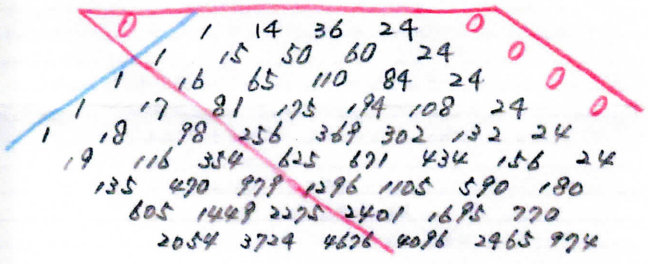 0 1 14 36 24 0
1 15 50 60 24 0
1 16 65 110 84 24 0
1 17 81 175 194 108 24 0
1 18 98 256 369 302 132 24
19 116 354 625 671 434 156 24
135 470 979 1296 1105 590 180
605 1449 2275 2401 1695 770
2054 3724 4676 4096 2465 974